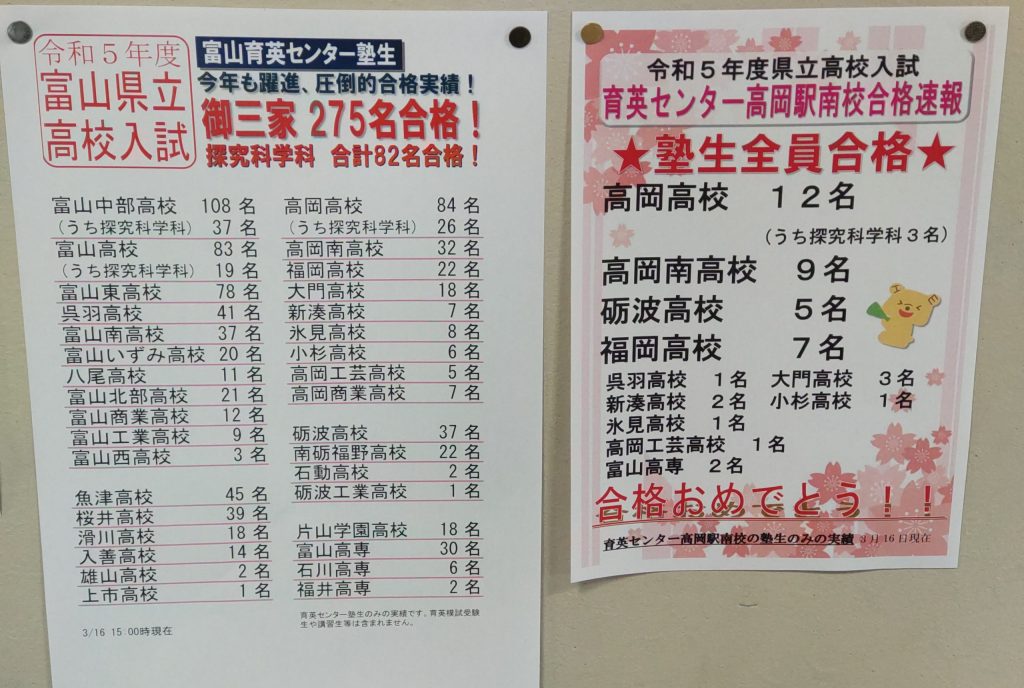 令和５年度
富山県立
高校入試
富山育英センター塾生
今年も躍進、圧倒的合格実績！
御三家 275名合格！
探究科学科 合計82名合格！
富山中部高校 108 名
（うち探究科学科） 37 名
富山高校 83 名
（うち探究科学科） 19 名
富山東高校 78 名
呉羽高校 41 名
富山南高校 37 名
富山いずみ高校 20 名
八尾高校 11 名
富山北部高校 21 名
富山商業高校 12 名
富山工業高校 9 名
富山西高校 3 名
魚津高校 45 名
桜井高校 39 名
滑川高校 18 名
入善高校 14 名
雄山高校 2 名
上市高校 1 名
3/16 15:00時現在
高岡高校 84 名
（うち探究科学科） 26 名
高岡南高校 32 名
福岡高校 22 名
大門高校 18 名
新湊高校 7 名
氷見高校 8 名
小杉高校 6 名
高岡工芸高校 5 名
高岡商業高校 7 名
砺波高校 37 名
南砺福野高校 22 名
石動高校 2 名
砺波工業高校 1 名
片山学園高校 18 名
富山高専 30 名
石川高専 6 名
福井高専 2 名
育英センター塾生のみの実績です。育英模試受験
生や講習生等は含まれません。
令和５年度県立高校入試
育英センター高岡駅南校合格速報
★塾生全員合格★
高岡高校 １２名
（うち探究科学科３名）
高岡南高校 ９名
砺波高校 ５名
福岡高校 ７名
呉羽高校 １名 大門高校 ３名
新湊高校 ２名 小杉高校 １名
氷見高校 １名
高岡工芸高校 １名
富山高専 ２名
合格おめでとう！！
育英センター高岡駅南校の塾生のみの実績 3月16日現在